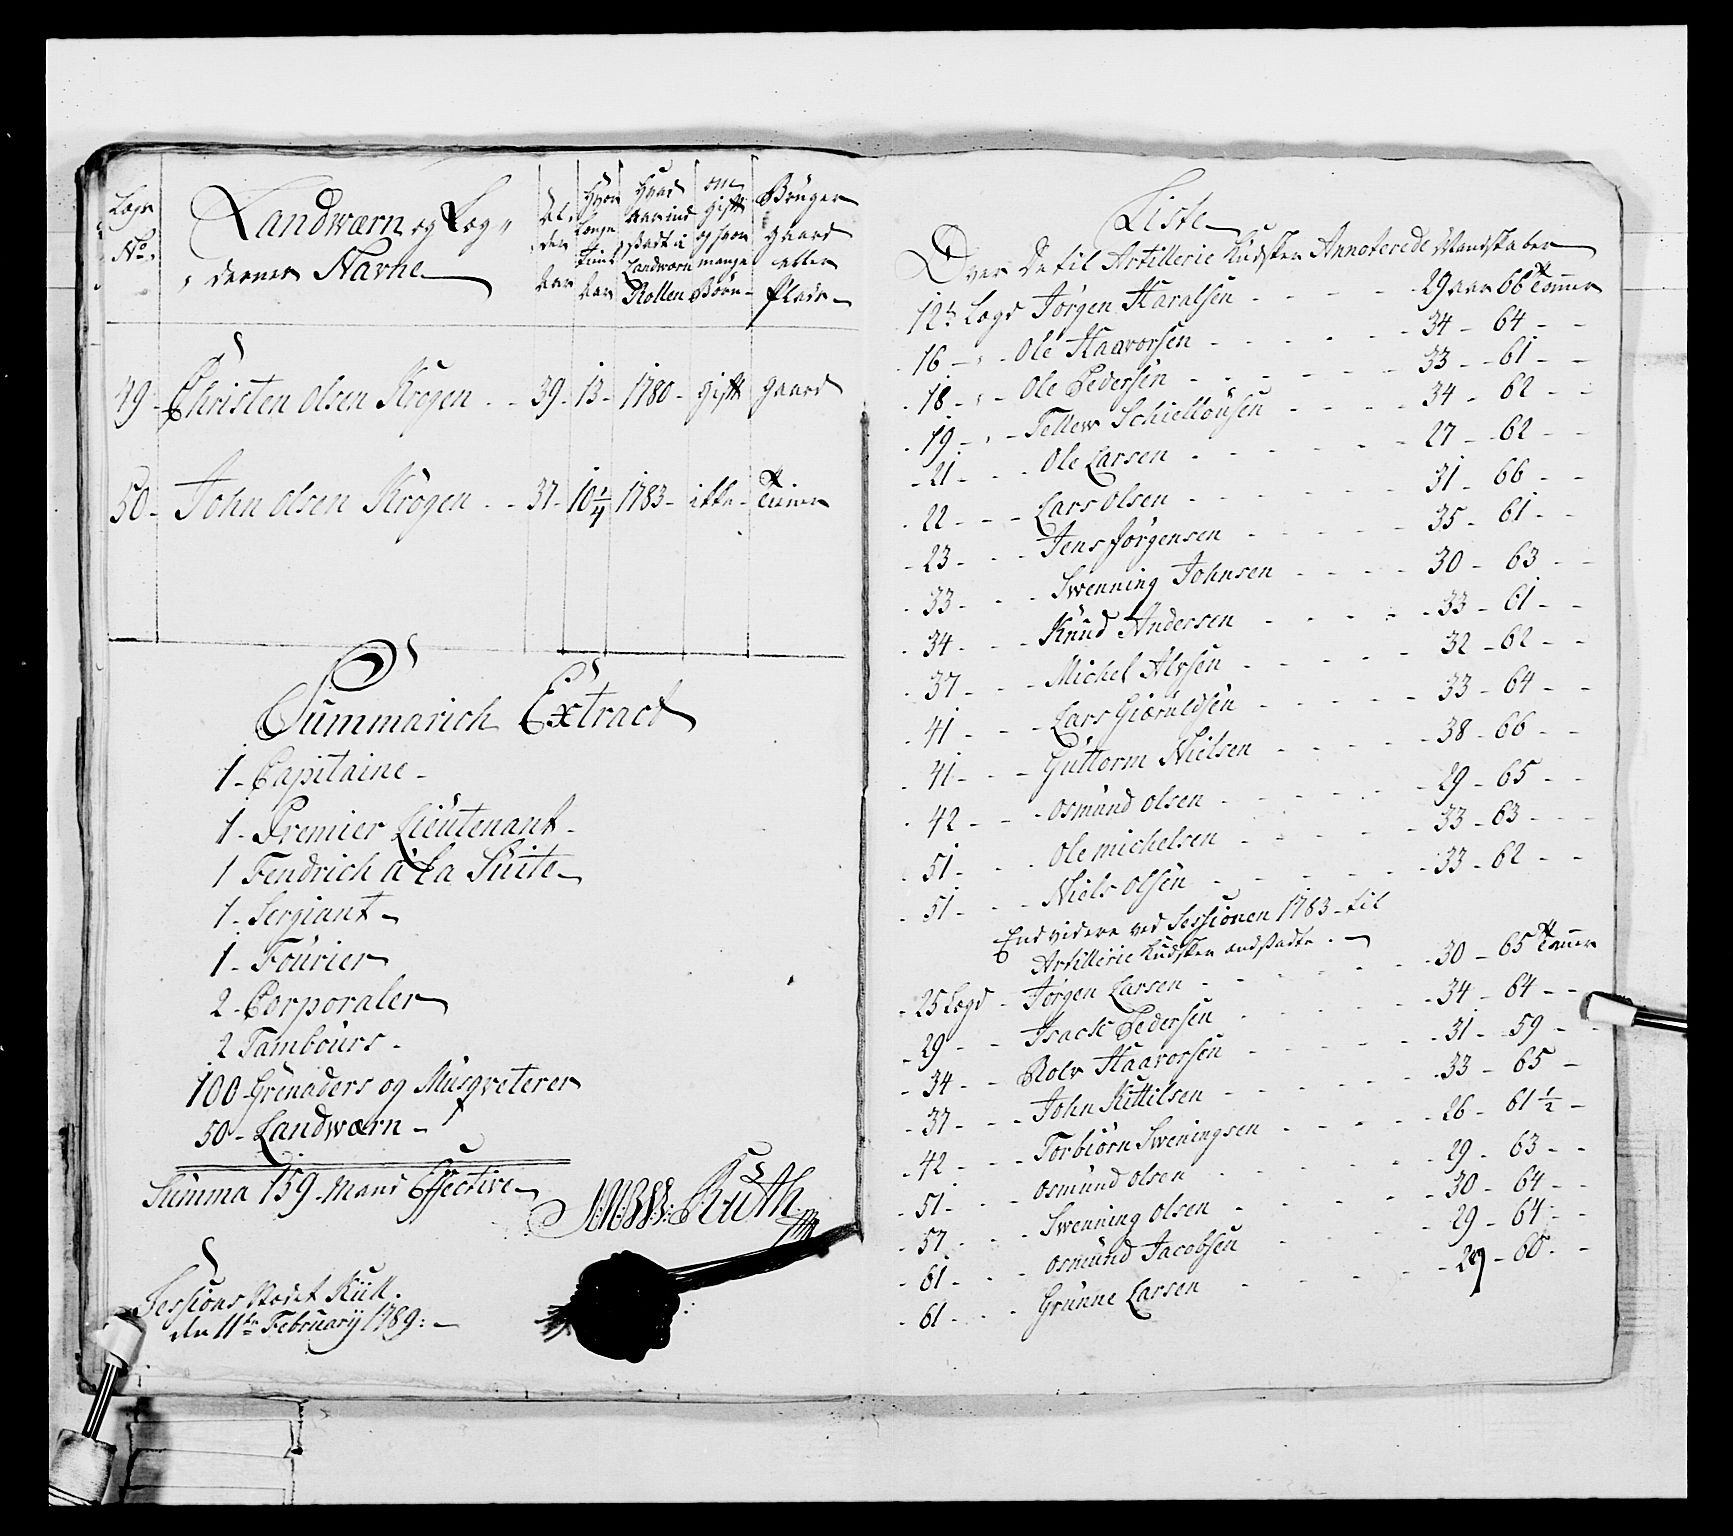 Lægs No. | Landværn og Læg- derner Navne | Al- der Aar | Hvor Længe tient Aar | Hvad Aar ind sadt i Landværn Rollen | om gift og hvor mange Børn | Bruger gaard eller Plads
49 - Christen Olsen Krogen - 39 - 13 - 1780 - gift gaard
50 - John Olsen Krogen - 37 - 10 1/4 1783 - ikke - Tiener
Summarisk Extract
1 - Capitaine -
1 - Premier Lieutenant -
1 Fendrich a la Suite -
1 - Sergiant -
1 - Fourier
2 - Corporaler
2 Tambours -
100 - Grenaders og Musqveterer
50 - Landværn -
Summa 159 - Mand Effective
Ruth
Sessions stædet
den 11te February 1789: -
Liste
Over De til Artillerie Kudsker Annoterede Mandskaber
12te Lægd Jørgen Haralsen - 29 aar 66 Tommer
16 - Ole Haavorsen - 34 - 64 -
18 - Ole Pedersen - 33 - 61 -
19 - Tellew Schiellousen - 34 - 62 -
21 - Ole Larsen - 27 - 62 -
22 - Lars Olsen - 31 - 66 -
23 - Jens Jørgensen - 35 - 61 -
33 - Swenning Johnsen - 30 - 63 -
34 - Knud Andersen - 33 - 61 -
37 - Michel Alvsen - 32 - 62 -
41 - Lars Giæruldsen - 33 - 64 -
41 - Guttorm Nielsen - 38 - 66 -
42 - Osmund Olsen - 29 - 65 -
51 - Ole Michelsen - 33 - 63 -
51 - Niels Olsen - 33 - 62 -
Endvidere ved Sessionen 1783 - til
Artillerie Kudsker andsadte . -
25 Lægd - Jørgen Larsen - 30 - 65 Tommer
29 - Isach Pedersen - 34 - 64 -
34 - Rolv Haavorsen - 31 - 59 -
37 - John Kittilsen - 33 - 65 -
42 - Torbiørn Sweningsen - 26 - 61 1/2 -
51 - Osmund Olsen - 29 - 63 -
57 - Swenning Olsen - 30 - 64 -
61 - Osmund Jacobsen - 29 - 64 -
61 - Grunne Larsen - 29 - 60 -